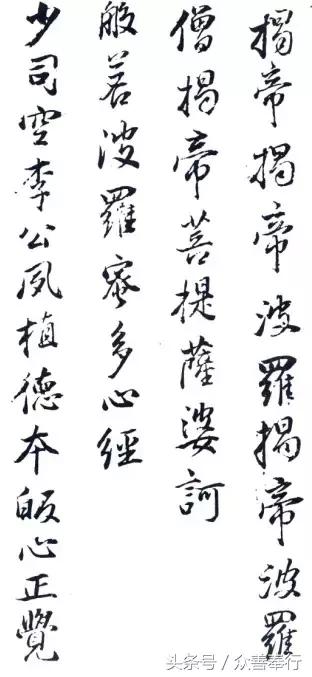 揭帝揭帝波羅揭帝波羅
僧揭帝菩提薩婆訶
般若波羅蜜多心經
少司空李公夙植德本皈心正覺
头条号/众善奉行